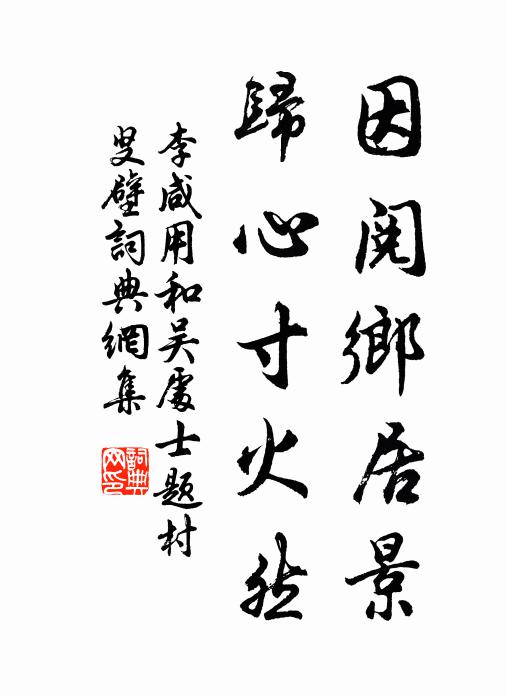 因閱鄉居景
歸心寸火然
李咸用和吴處士題村
叟壁詞典網集
詞典
网印